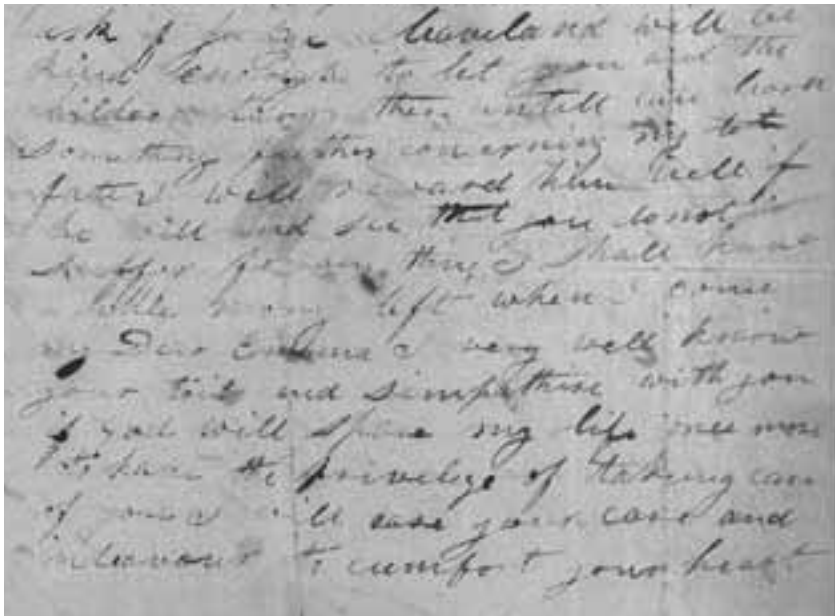 ask if Loveland will be
kind enough to let you and the
stay there untill can learn
something further concerning my
will reward him well if
he will and see that you do not
suffer for any thing I shall have
a little mony left when I come
my Dear Emma I very well know
your toil and simpathise with you
if god will spare my life once more
to have the privelige of taking care
of you I will ease your care and
indeavour to cumfort your heart